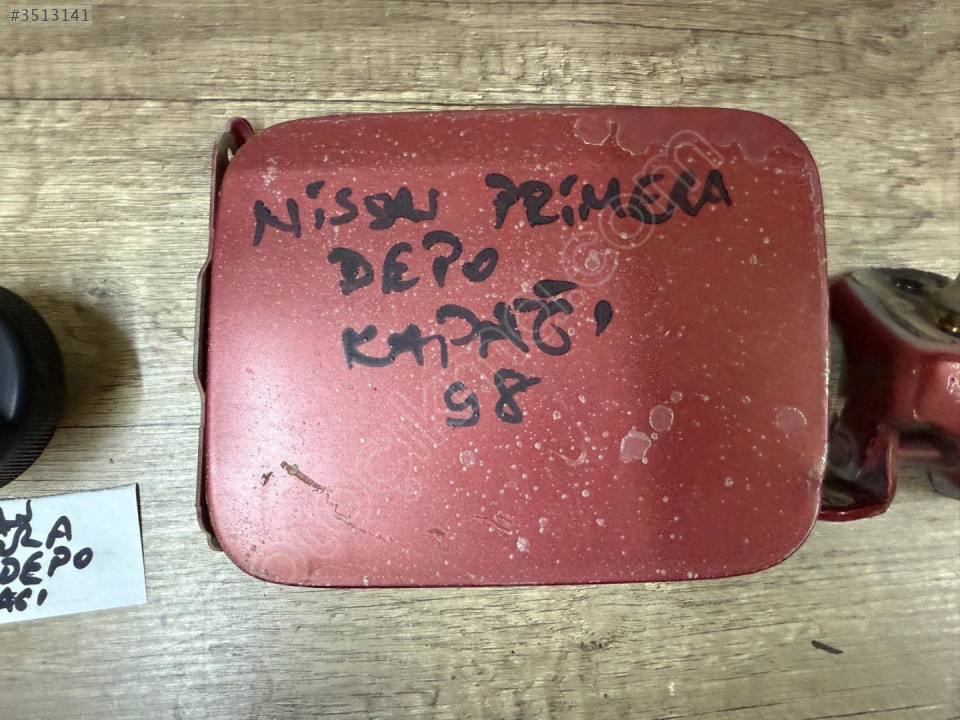 #3513141
NİSSAN PRİMERA
DEPO
KAPAĞI
98
DEPO